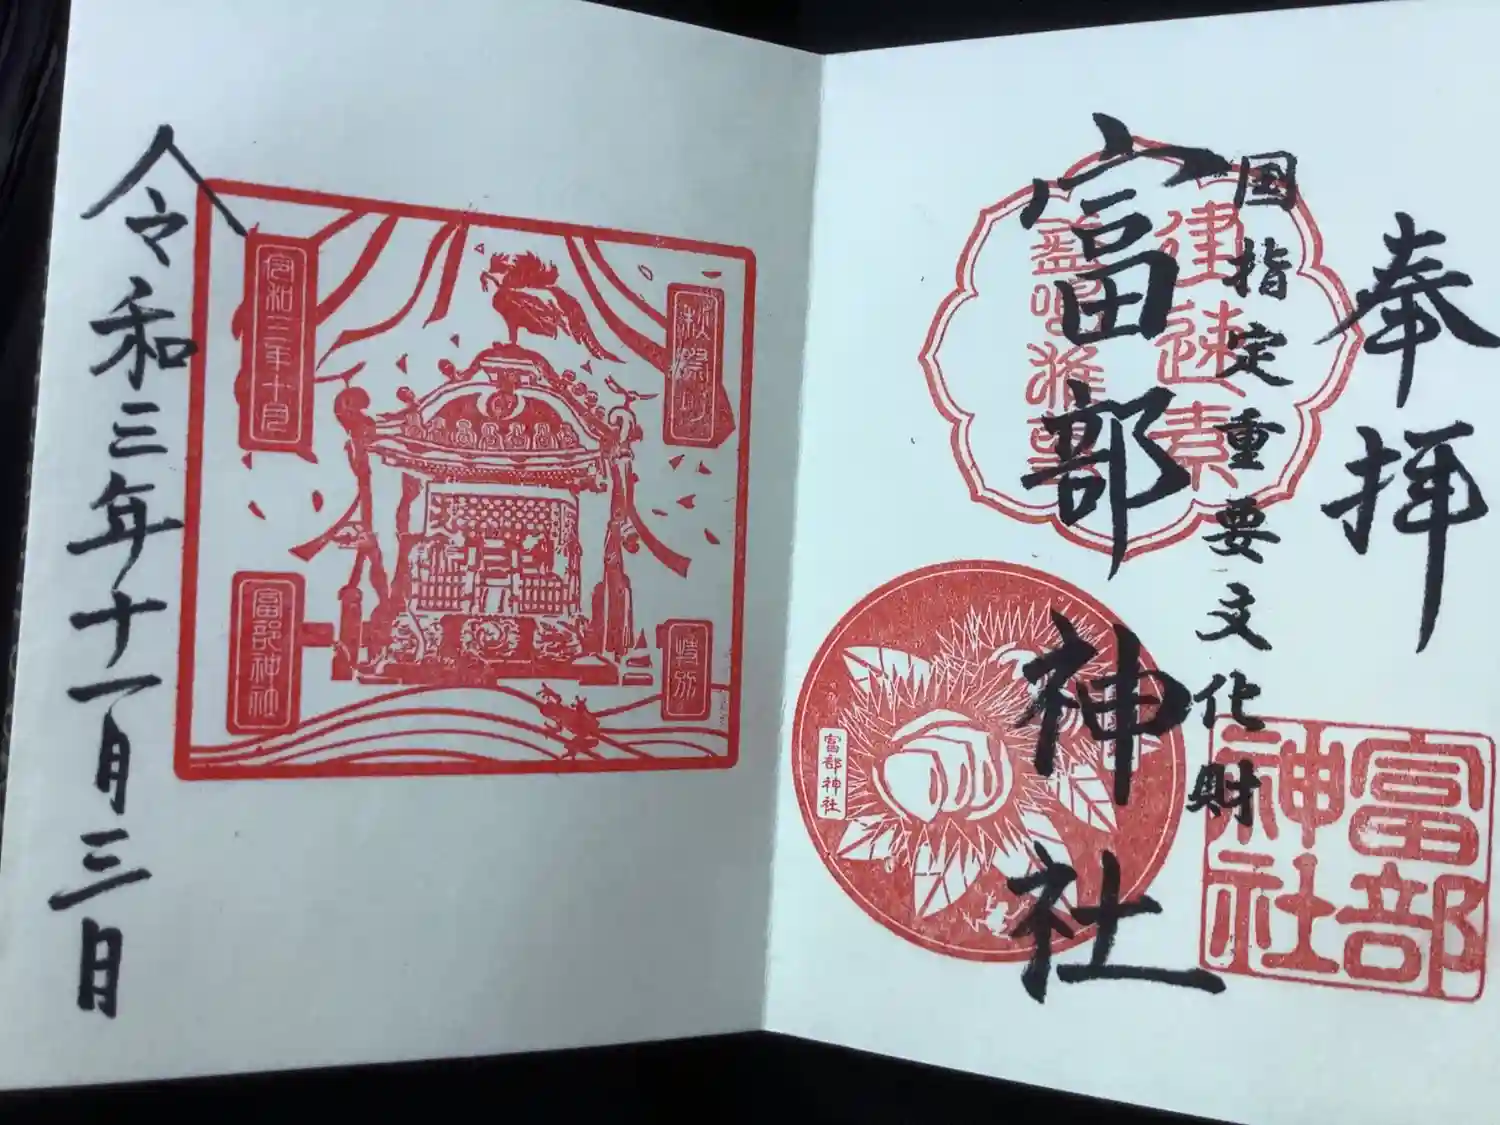 奉拝
国指定重要文化財
富部神社
建速素
盞嗚雅尊
富部
神社
富部神社
令和三年十一月三日
秋祭り
特別
令和三年十一月
富部神社